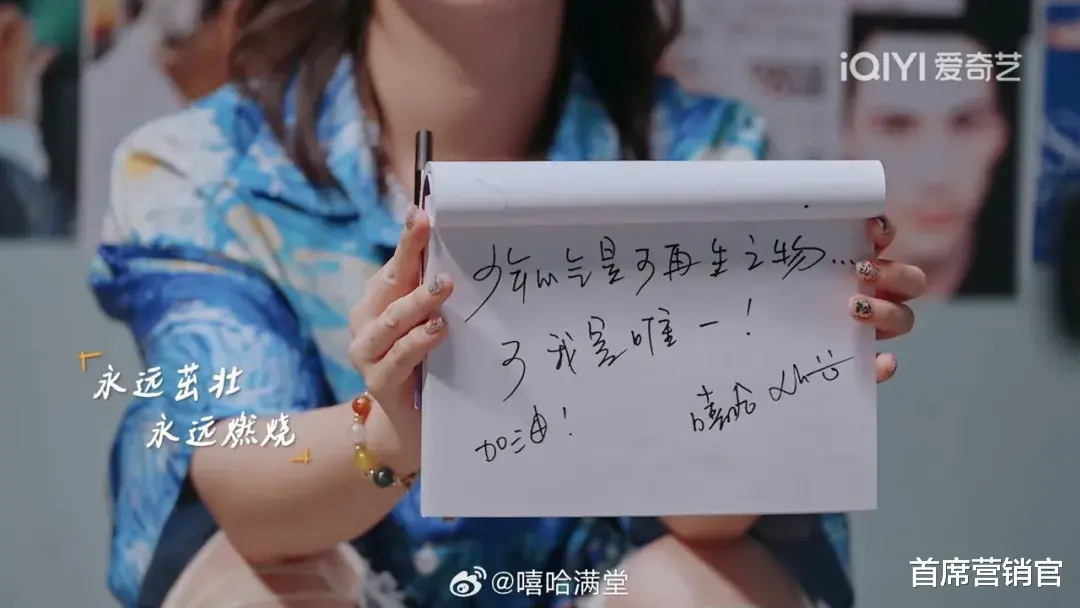 iQIYI 爱奇艺
少年心气是不可再生之物...
可我是唯一!
加油!
嘻哈
永远茁壮
永远燃烧
@嘻哈满堂
首席营销官